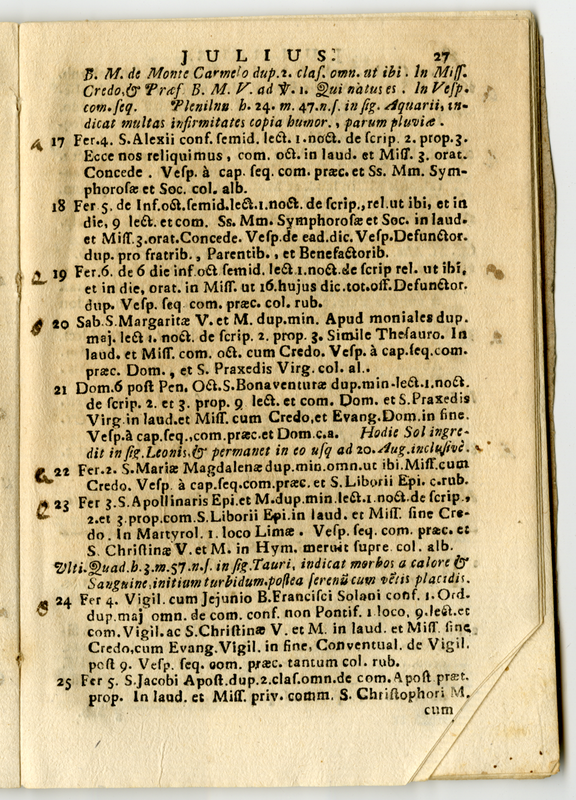 JULIUS. 27
B. M. de Monte Carmelo dup.2. claſ. omn. ut ibi. In Miſſ.
Credo, & Præf. B. M. V. ad ℣. 1. Qui natus es. In Veſp.
com. ſeq. Plenilun. h. 24. m. 47. n.ſ. in ſig. Aquarii, in-
dicat multas infirmitates copia humor., parum pluviæ.
17 Fer.4. S. Alexii conf. ſemid. lect. 1.noct. de ſcrip. 2. prop.3.
Ecce nos reliquimus, com. oct. in laud. et Miſſ. 3. orat.
Concede. Veſp. à cap. ſeq. com. præc. et Ss. Mm. Sym-
phoroſæ et Soc. col. alb.
18 Fer 5. de Inf.oct.ſemid.lect.1.noct. de ſcrip., rel.ut ibi, et in
die, 9 lect. et com. Ss. Mm. Symphoroſæ et Soc. in laud.
et Miſſ 3.orat.Concede. Veſp.de ead.dic. Veſp.Defunctor.
dup. pro fratrib., Parentib., et Benefactorib.
19 Fer.6. de 6 die inf.oct ſemid. lect.1.noct.de ſcrip rel. ut ibi,
et in die, orat. in Miſſ. ut 16.hujus dic.tot.off.Defunctor.
dup. Veſp. ſeq com. præc. col. rub.
20 Sab.S.Margaritæ V. et M. dup.min. Apud moniales dup.
maj. lect 1. noct. de ſcrip. 2. prop. 3. Simile Theſauro. In
laud. et Miſſ. com. oct. cum Credo. Veſp. à cap.ſeq.com.
præc. Dom., et S. Praxedis Virg. col. al..
21 Dom.6 poſt Pen. Oct.S.Bonaventuræ dup.min.lect.1.noct.
de ſcrip. 2. et 3. prop. 9 lect. et com. Dom. et S.Praxedis
Virg in laud.et Miſſ. cum Credo,et Evang.Dom.in fine.
Veſp.à cap.ſeq.,com.præc.et Dom c.a. Hodie Sol ingre-
dit in ſig.Leonis,& permanet in eo uſq ad 20. Aug.incluſivè.
22 Fer.2. S. Mariæ Magdalenæ dup.min.omn.ut ibi.Miſſ.cum
Credo. Veſp. à cap.ſeq.com.præc. et S. Liborii Epi. c.rub.
23 Fer 3.S.Apollinaris Epi.et M.dup.min.lect.1.noct.de ſcrip.,
2.et 3.prop.com.S.Liborii Epi.in laud. et Miſſ. ſine Cre-
do. In Martyrol. 1. loco Limæ. Veſp. ſeq. com. præc. et
S. Chriſtinæ V. et M. in Hym. meruit ſupre. col. alb.
Ulti.Quad.h.3.m.57.n.ſ. in ſig.Tauri, indicat morbos a calore &
Sanguine,initium turbidum.poſtea ſerenũ cum vẽtis placidis.
24 Fer 4. Vigil. cum Jejunio B.Franciſci Solani conf. 1. Ord.
dup.maj omn. de com. conf. non Pontif. 1 loco, 9.lect.et
com. Vigil. ac S.Chriſtinæ V. et M. in laud. et Miſſ. ſine
Credo,cum Evang.Vigil. in fine, Conventual. de Vigil.
poſt 9. Veſp. ſeq. com. præc. tantum col. rub.
25 Fer 5. S.Jacobi Apoſt.dup.2.claſ.omn.de com. Apoſt præt.
prop. In laud. et Miſſ. priv. comm. S. Chriſtophori M.
cum